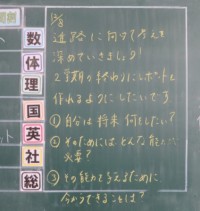 12/8
進路に向けて考えを
深めていきましょう!
2学期が終わりにレポートを
作れるようにしたいです
① 自分は将来何をしたい?
② そのためにはどんな能力が
必要?
③ その能力を考えるために
今からできることは?
数
体
理
国
英
社
総